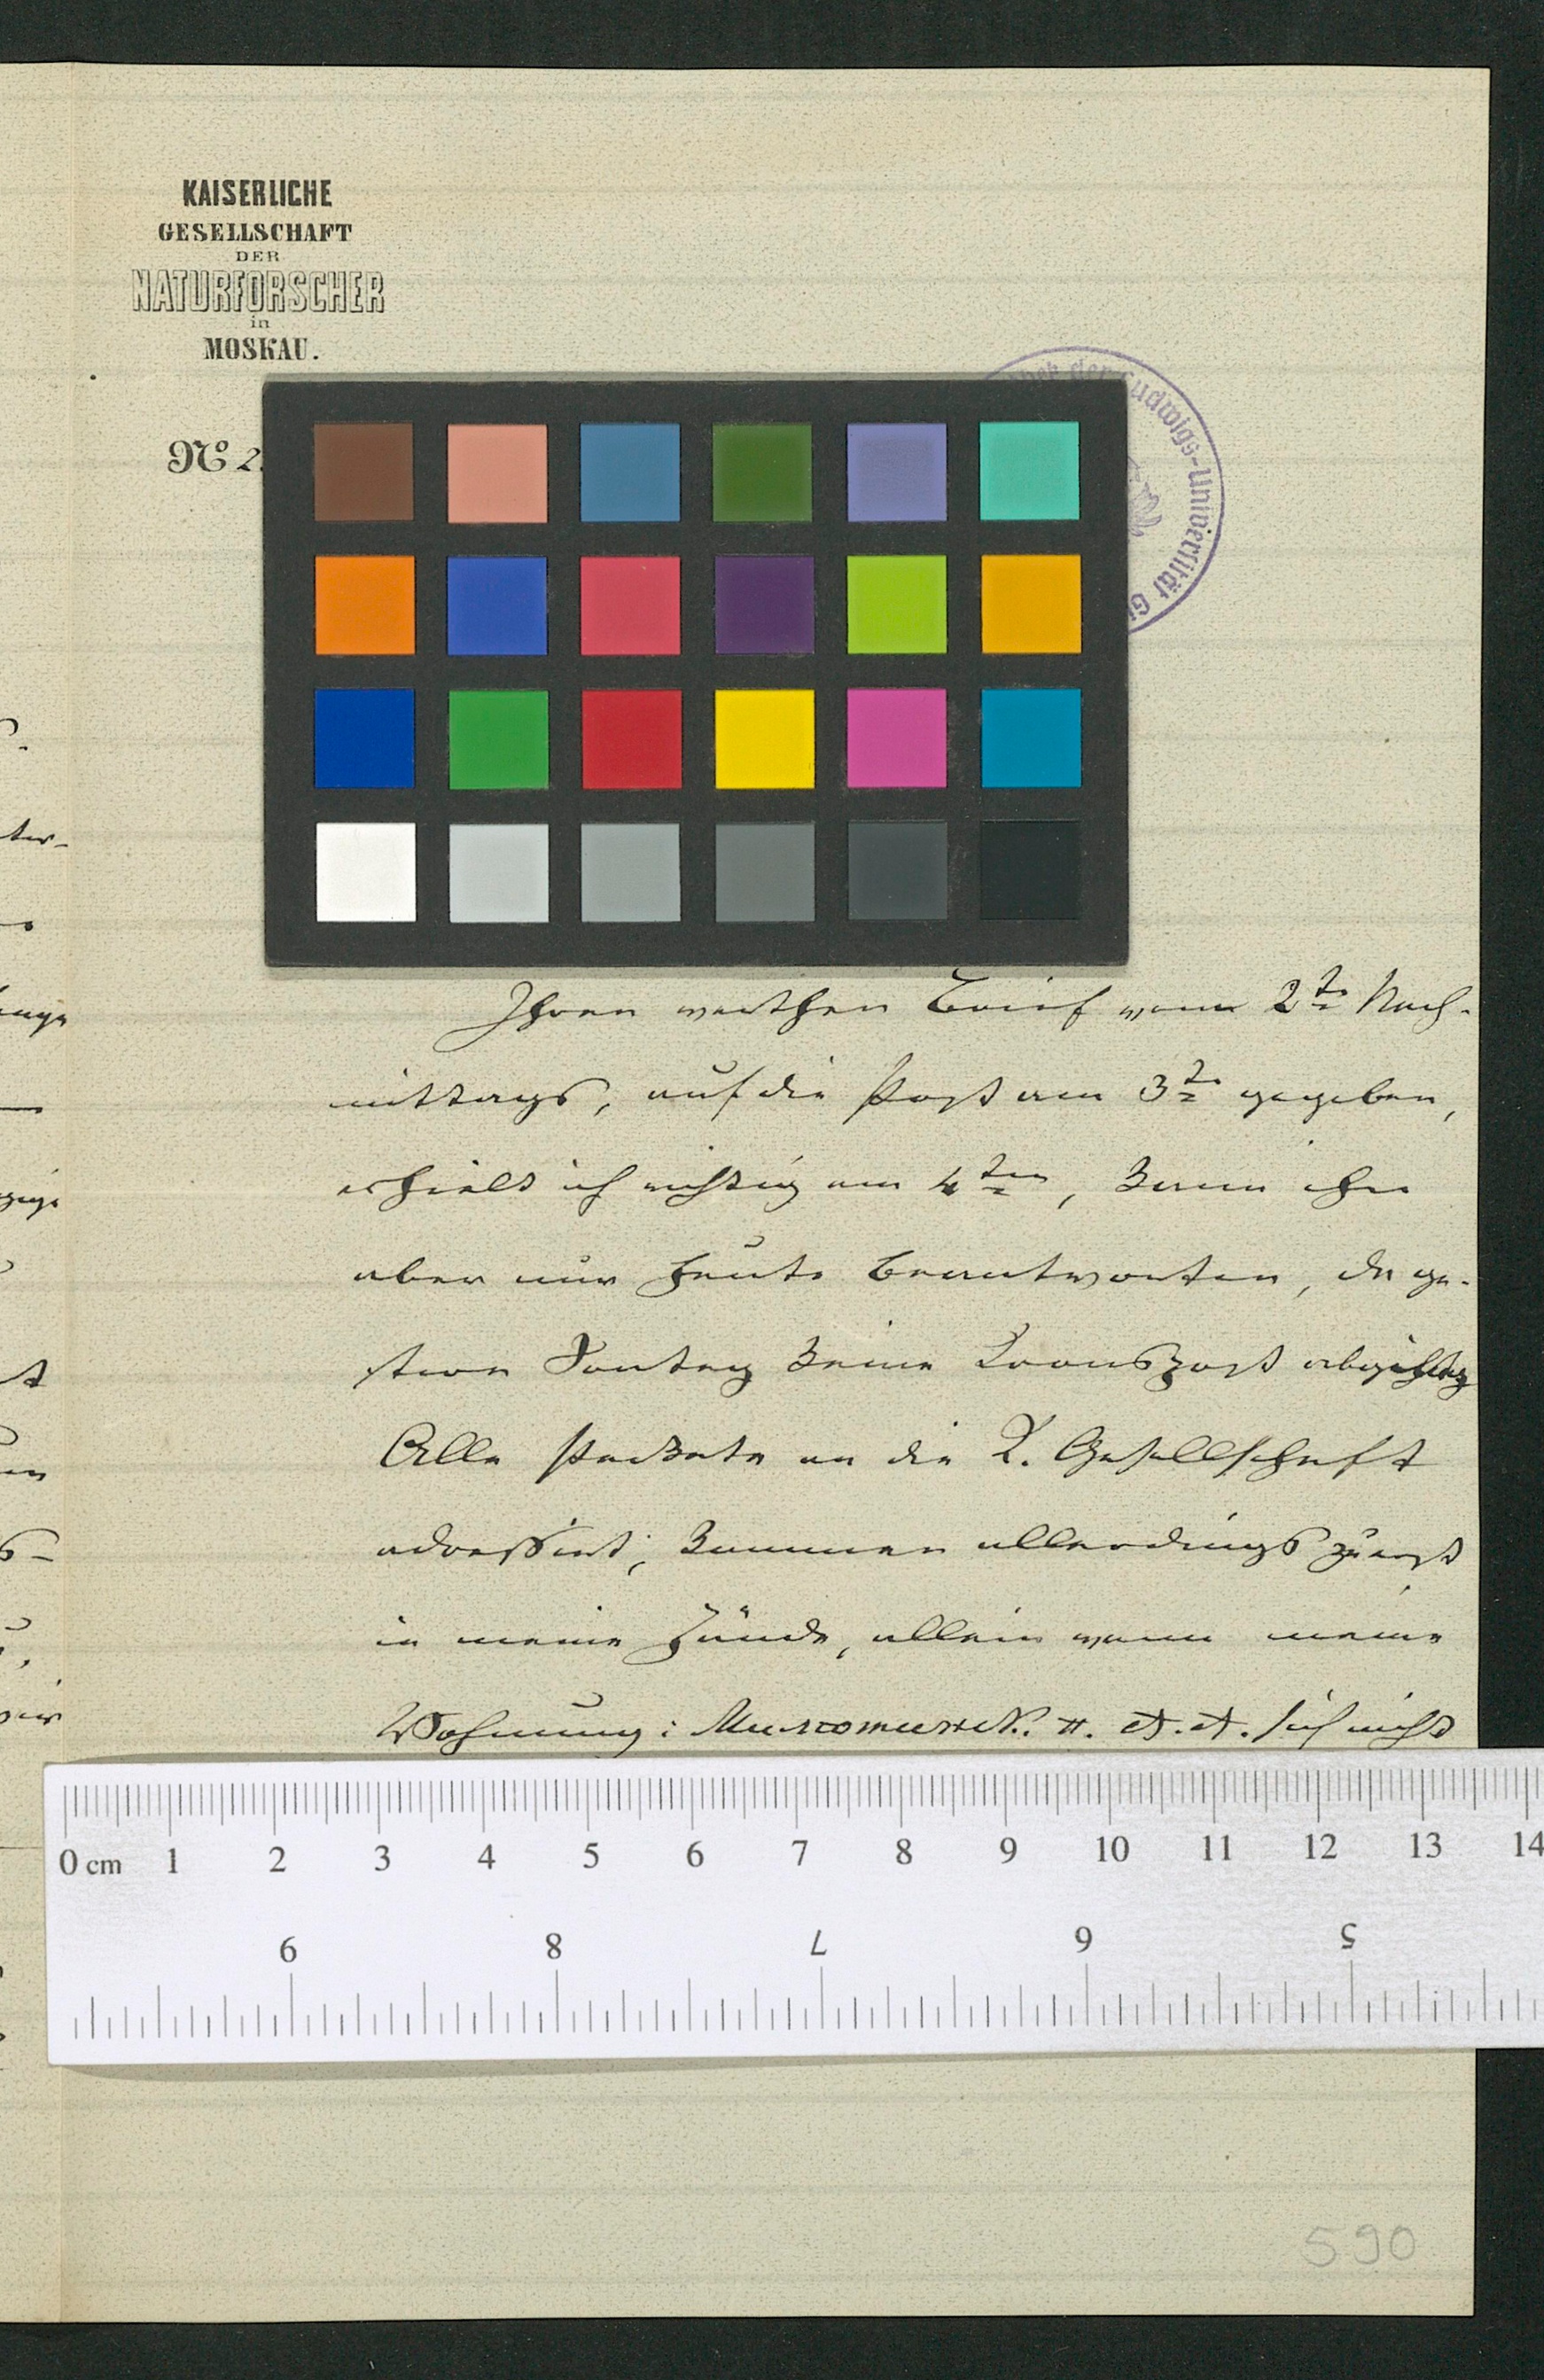 KAISERLICHE
GESELLSCHAFT
DER
NATURFORSCHER
in
MOSKAU.
der Ludwigs-Universität
№ 2
Ihren werthen Brief vom 2t. Nach-
mittags, auf die Post am 3t. gegeben,
erhielt ich richtig am 4ten, kann ihn
aber nur heute beantworten, da ge-
stern Sontag keine Kronspost abgieng
Alle Packete an die K. Gesellschaft
adressirt, kommen allerdings zuerst
in meine Hände, allein wenn meine
Wohnung: sich nicht
0 cm 1 2 3 4 5 6 7 8 9 10 11 12 13 14
9 8 7 6 5
590